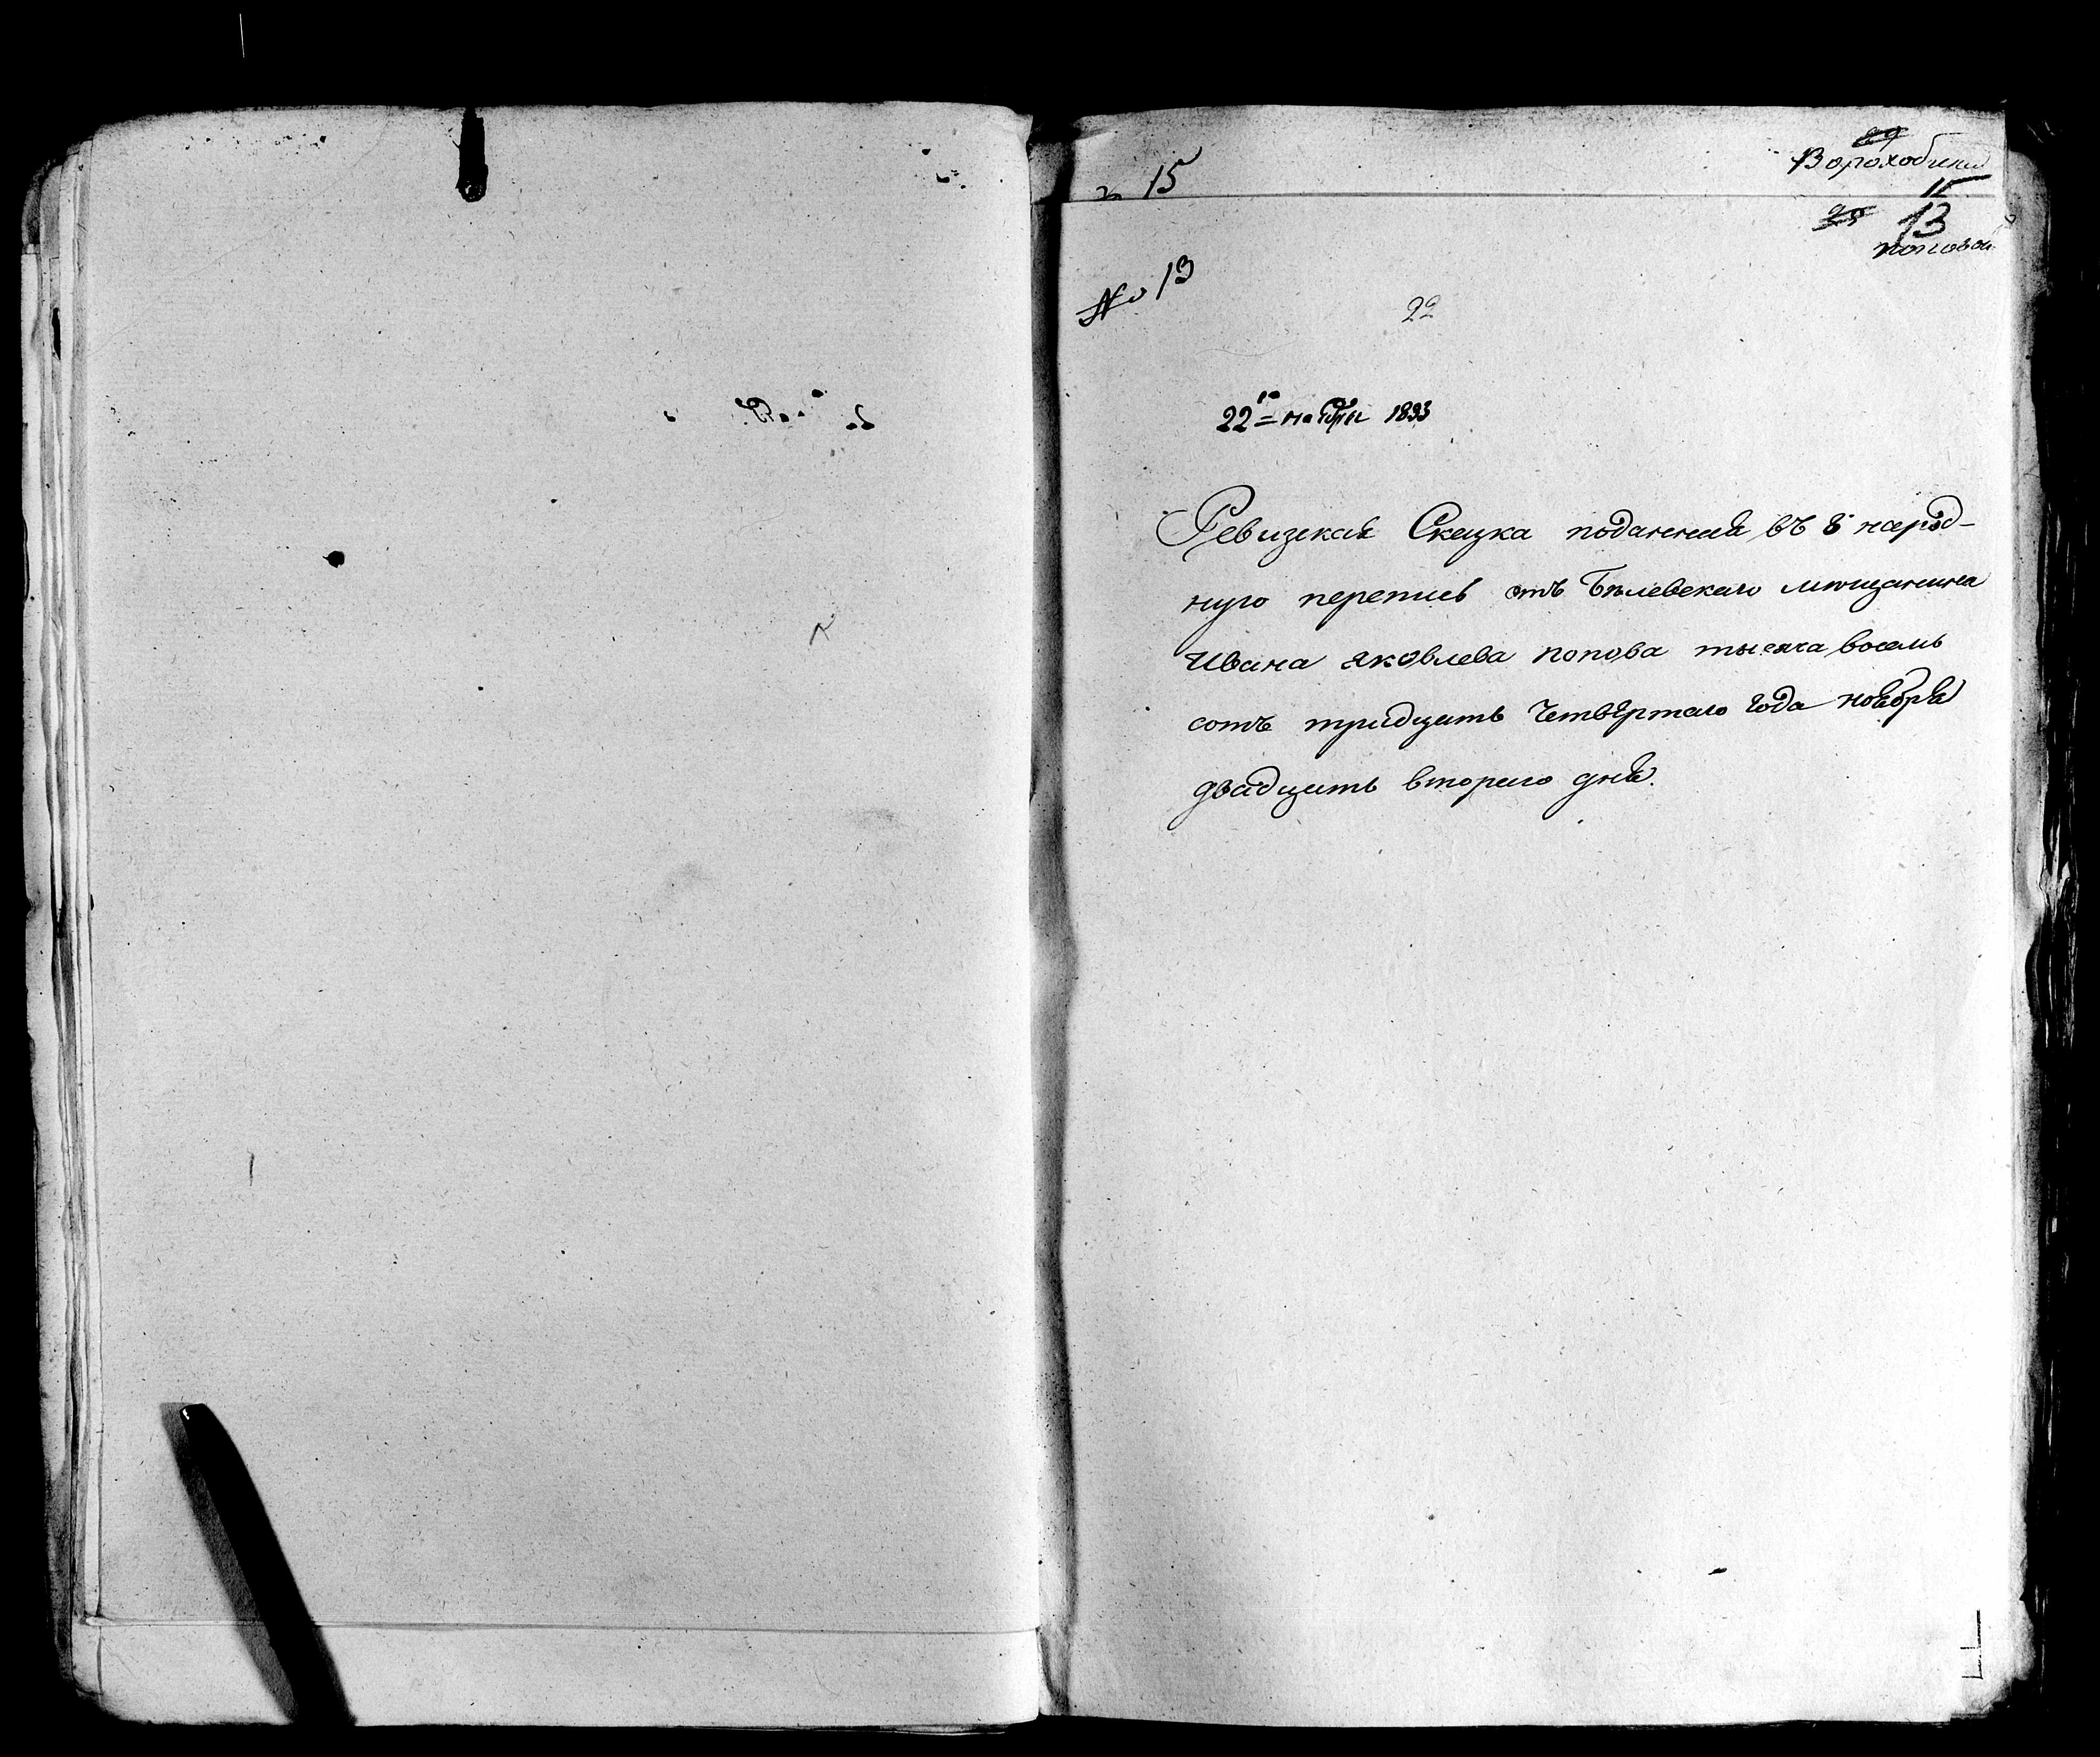 15
Ворохобина
15
13
Поповой
№ 13
22
22го ноября 1833
Ревизская Сказка поданная въ 8 народ-
ную перепись отъ Бѣлевскаго мѣщанина
Ивана яковлева попова тысяча восемь
сотъ тридцать четвертаго года ноября
двадцать втораго дня.